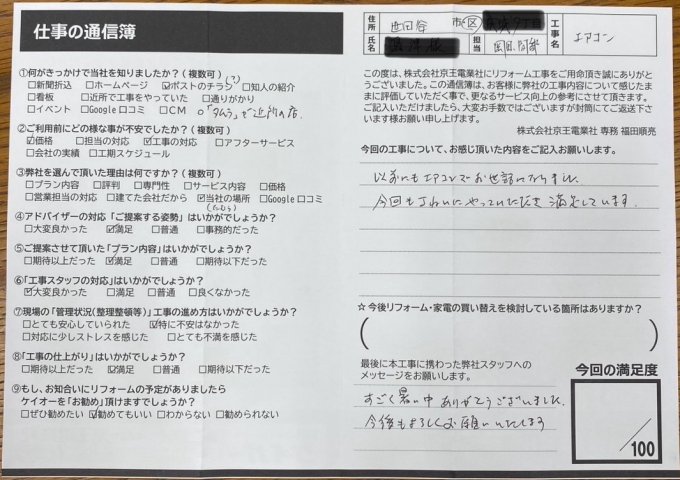 仕事の通信簿
①何がきっかけで当社を知りましたか？(複数可)
□新聞折込 □ホームページ ☑ポストのチラシ □知人の紹介
□看板 □近所で工事をやっていた □通りがかり
□イベント □Google口コミ □CM
②ご利用前にどの様な事が不安でしたか？(複数可)
☑価格 □担当の対応 ☑工事の対応 □アフターサービス
□会社の実績 □工期スケジュール
③弊社を選んで頂いた理由は何ですか？(複数可)
□プラン内容 □評判 □専門性 □サービス内容 □価格
□営業担当の対応 □建てた会社だから ☑当社の場所 □Google口コミ
④アドバイザーの対応「ご提案する姿勢」はいかがでしょうか？
□大変良かった ☑満足 □普通 □事務的だった
⑤ご提案させて頂いた「プラン内容」はいかがでしょうか？
□期待以上だった ☑満足 □普通 □期待以下だった
⑥「工事スタッフの対応」はいかがでしょうか？
☑大変良かった □満足 □普通 □良くなかった
⑦現場の「管理状況(整理整頓等)」工事の進め方はいかがでしょうか？
□とても安心していられた ☑特に不安はなかった
□対応に少しストレスを感じた □とても不満を感じた
⑧「工事の仕上がり」はいかがでしょうか？
□期待以上だった ☑満足 □普通 □期待以下だった
⑨もし、お知合いにリフォームの予定がありましたら
ケイオーを「お勧め」頂けますでしょうか？
□ぜひ勧めたい ☑勧めてもいい □わからない □勧められない
住所 世田谷 市・区
氏名 様 担当
工事名 エアコン
この度は、株式会社京王電業社にリフォーム工事をご用命頂き誠にありがとう
ございました。この通信簿は、お客様に弊社の工事内容について感じたま
まに評価していただく事で、更なるサービス向上の参考にさせて頂きます。
ご記入いただけましたら、大変お手数ではございますが封筒にてご返送下さ
います様お願い申し上げます。
株式会社京王電業社 専務 福田順亮
今回の工事について、お感じ頂いた内容をご記入お願いします。
以前にもエアコンでお世話になりました
今回もきれいにやっていただき満足しています.
☆今後リフォーム・家電の買い替えを検討している箇所はありますか？
( )
最後に本工事に携わった弊社スタッフへの
メッセージをお願いします。
すごく暑い中ありがとうございました.
今後もよろしくお願いいたします
今回の満足度
/100